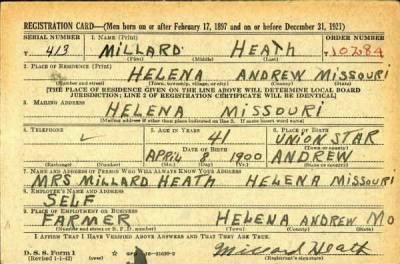 REGISTRATION CARD—(Men born on or after February 17, 1897 and on or before December 31, 1921)
SERIAL NUMBER 1. NAME (Print) ORDER NUMBER
413 MILLARD HEATH 10284
(First) (Middle) (Last)
2. PLACE OF RESIDENCE (Print)
HELENA ANDREW MISSOURI
(Number and street) (Town, township, village, or city) (County) (State)
[THE PLACE OF RESIDENCE GIVEN ON THE LINE ABOVE WILL DETERMINE LOCAL BOARD
JURISDICTION; LINE 2 OF REGISTRATION CERTIFICATE WILL BE IDENTICAL]
3. MAILING ADDRESS
HELENA MISSOURI
(Mailing address if other than place indicated on line 2. If same insert word same)
4. TELEPHONE 5. AGE IN YEARS 6. PLACE OF BIRTH
41 UNION STAR
DATE OF BIRTH (Town or county)
APRIL 8 1900 ANDREW
(Exchange) (Number) (Mo.) (Day) (Yr.) (State or country)
7. NAME AND ADDRESS OF PERSON WHO WILL ALWAYS KNOW YOUR ADDRESS
MRS MILLARD HEATH HELENA MISSOURI
8. EMPLOYER'S NAME AND ADDRESS
SELF
9. PLACE OF EMPLOYMENT OR BUSINESS
FARMER HELENA ANDREW MO
(Number and street or R. F. D. number) (Town) (County) (State)
I AFFIRM THAT I HAVE VERIFIED ABOVE ANSWERS AND THAT THEY ARE TRUE.
D. S. S. Form 1
(Revised 1-1-42) Millard Heath
(Registrant's signature)